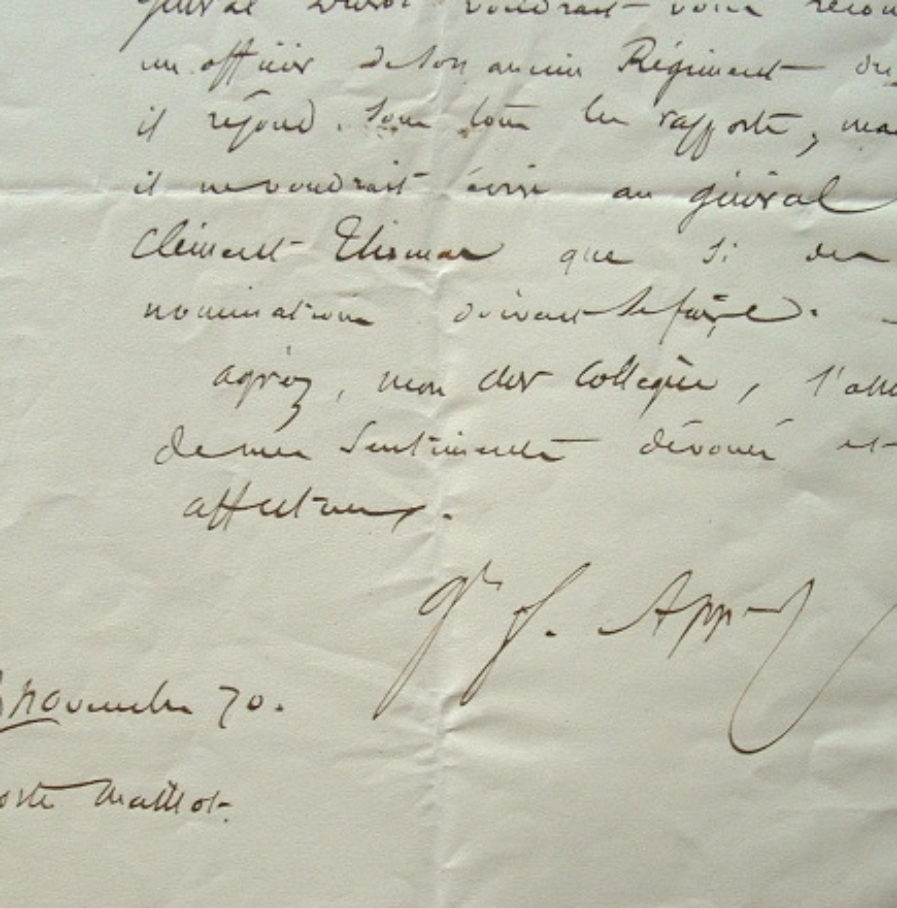 général Ducrot voudrait vous recom
un officier de son ancien Régiment du
il répond sous tous les rapports, mai
il ne voudrait écrire au général
Clément Thomas que si des
nominations doivent se faire.
agréez, mon cher Collègue, l'assu
de mes Sentiments dévoués et
affectueux.
Gal f. Appert
novembre 70.
orte Maillot.